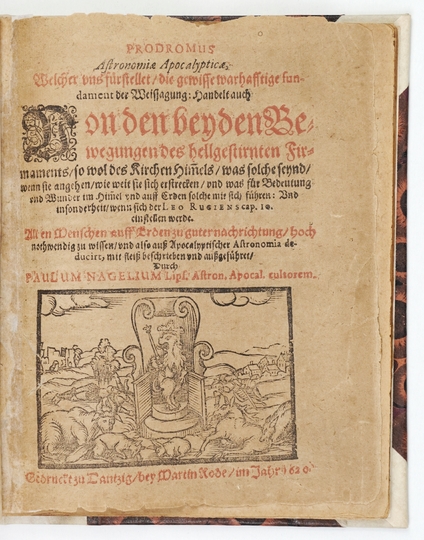 PRODROMUS
Astronomiæ Apocalypticæ,
Welcher vns fürstellet / die gewisse warhafftige fun-
dament der Weissagung: Handelt auch
Von den beyden Be-
wegungen des hellgestirnten Fir-
maments / so wol des Kirchen Him̃els / was solche seynd /
wenn sie angehen / wie weit sie sich erstrecken / vnd was für Bedeutung
vnd Wunder im Him̃el vnd auff Erden solche mit sich führen: Vnd
insonderheit / wenn sich der LEO RUGIENS cap. 10.
einstellen werde.
Allen Menschen auff Erden zu guter nachrichtung / hoch
nothwendig zu wissen / vnd also auß Apocalyptischer Astronomia de-
ducirt, mit fleiß beschrieben vnd außgeführet /
Durch
PAULUM NAGELIUM Lips. Astron. Apocal. cultorem.
Gedruckt zu Dantzig / bey Martin Rode / im Jahr 1620.